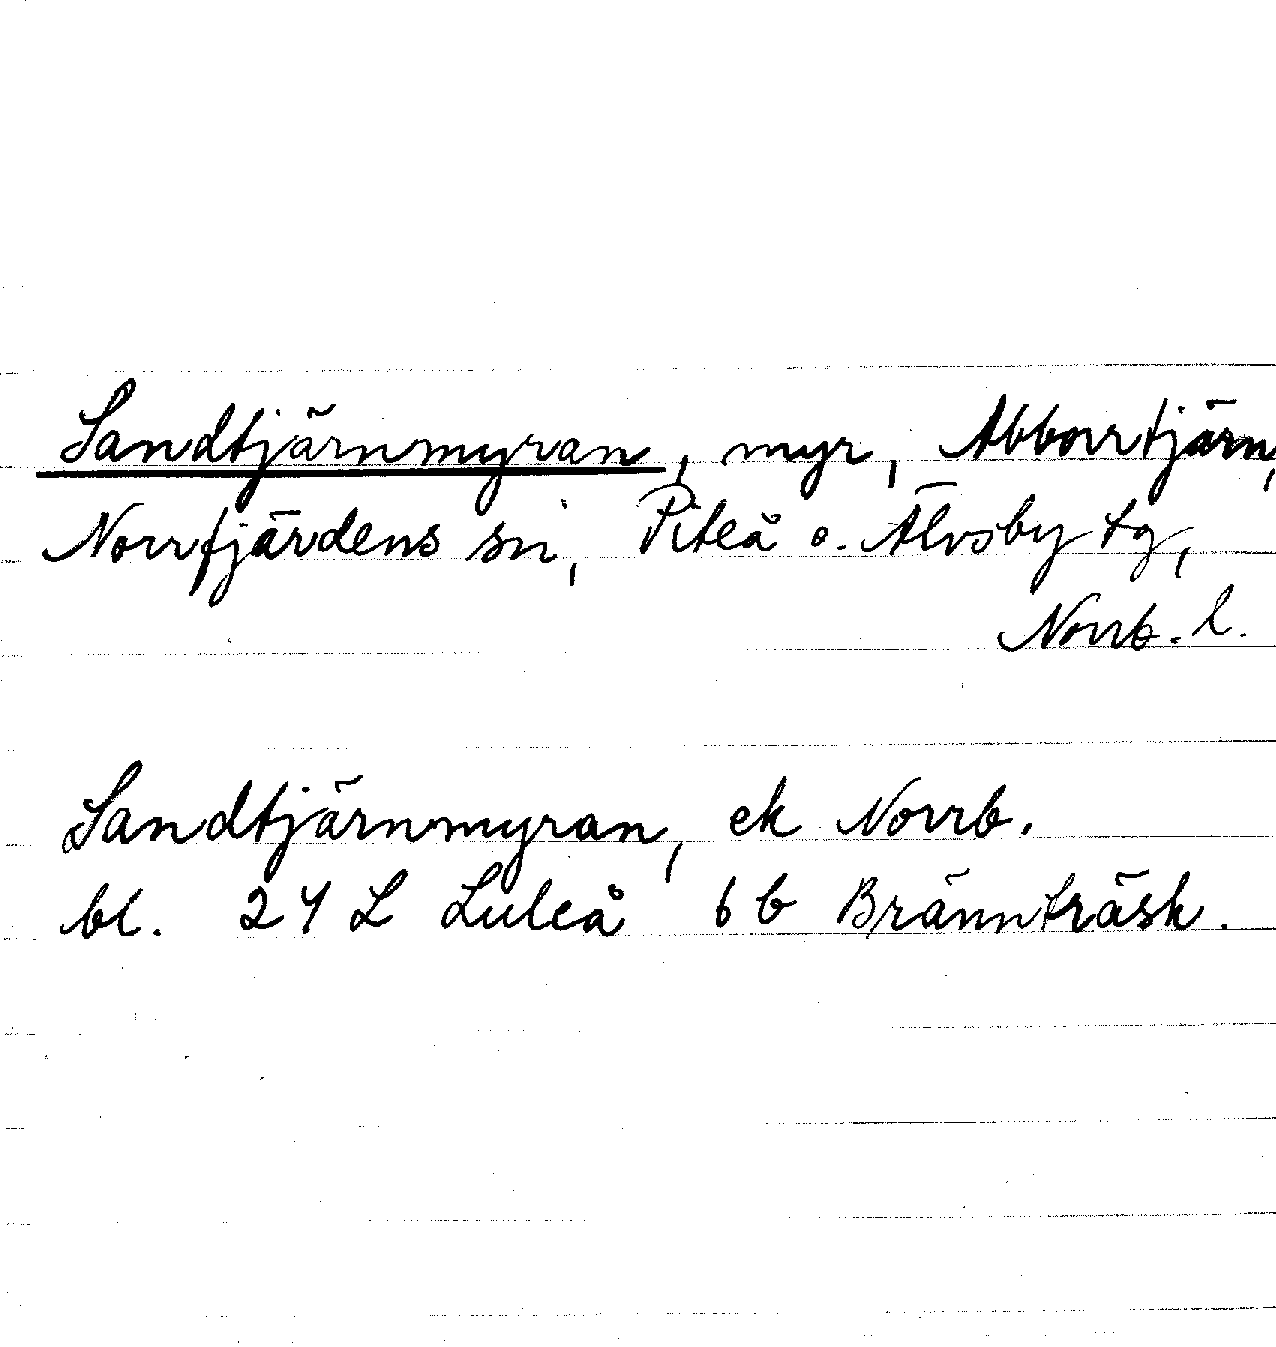 Sandtjärnmyran, myr, Abborrtjärn,
Norrfjärdens sn, Piteå o. Älvsby tg,
Norrb. l.
Sandtjärnmyran, ek Norrb.
bl. 24 L Luleå 6 b Brännträsk.